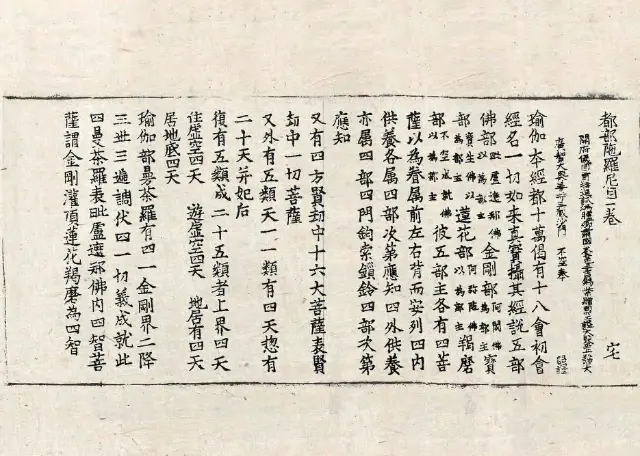 都部陁羅尼目一卷 宅
開府儀同三司特進試鴻臚卿肅國公食邑三千戶賜紫贈司空謚大
廣智大興善寺三藏沙門 不空奉 詔譯
瑜伽本經都十萬偈有十八會初會
經名一切如来真實攝其經說五部
佛部毗盧遮那佛以為部主金剛部阿閦佛以為部主寶
部寶生佛以為部主蓮花部阿弥陁佛以為部主羯磨
部不空成就佛以為部主彼五部主各有四菩
薩以為眷属前左右背而安列四内
供養各属四部次第應知四外供養
亦属四部四門鉤索鏁鈴四部次第
應知
又有四方賢劫中十六大菩薩表賢
劫中一切菩薩
又外有五類天一一類有四天惣有
二十天并妃后
復有五類成二十五類者上界四天
住虛空四天 遊虛空四天 地居有四天
居地底四天
瑜伽部曼荼羅有四一金剛界二降
三世三遍調伏四一切義成就此
四曼荼羅表毗盧遮那佛内四智菩
薩謂金剛灌頂蓮花羯磨為四智